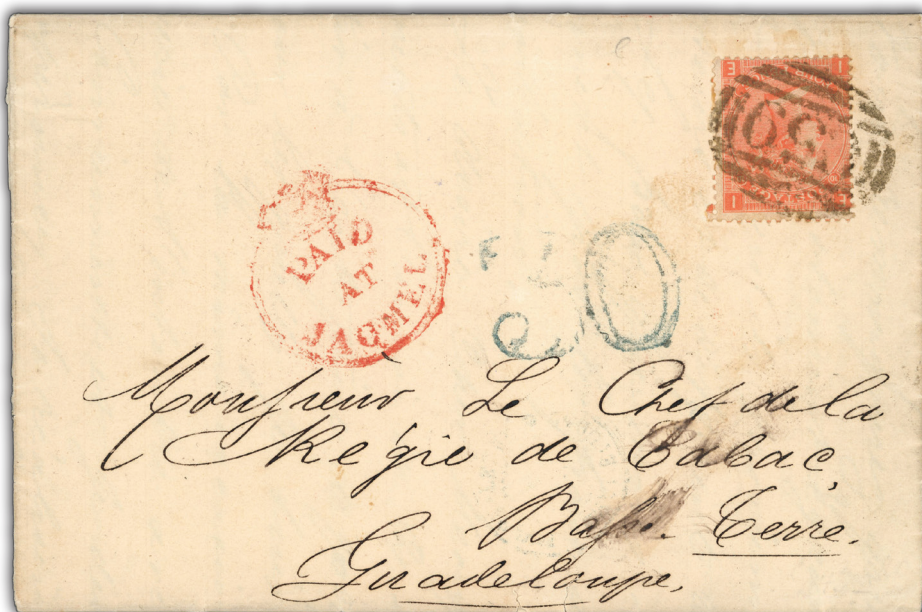 E I
I E
PAID
AT
JACMEL
30
Monsieur Le Chef de la
Régie de Tabac,
Basse Terre.
Guadeloupe.